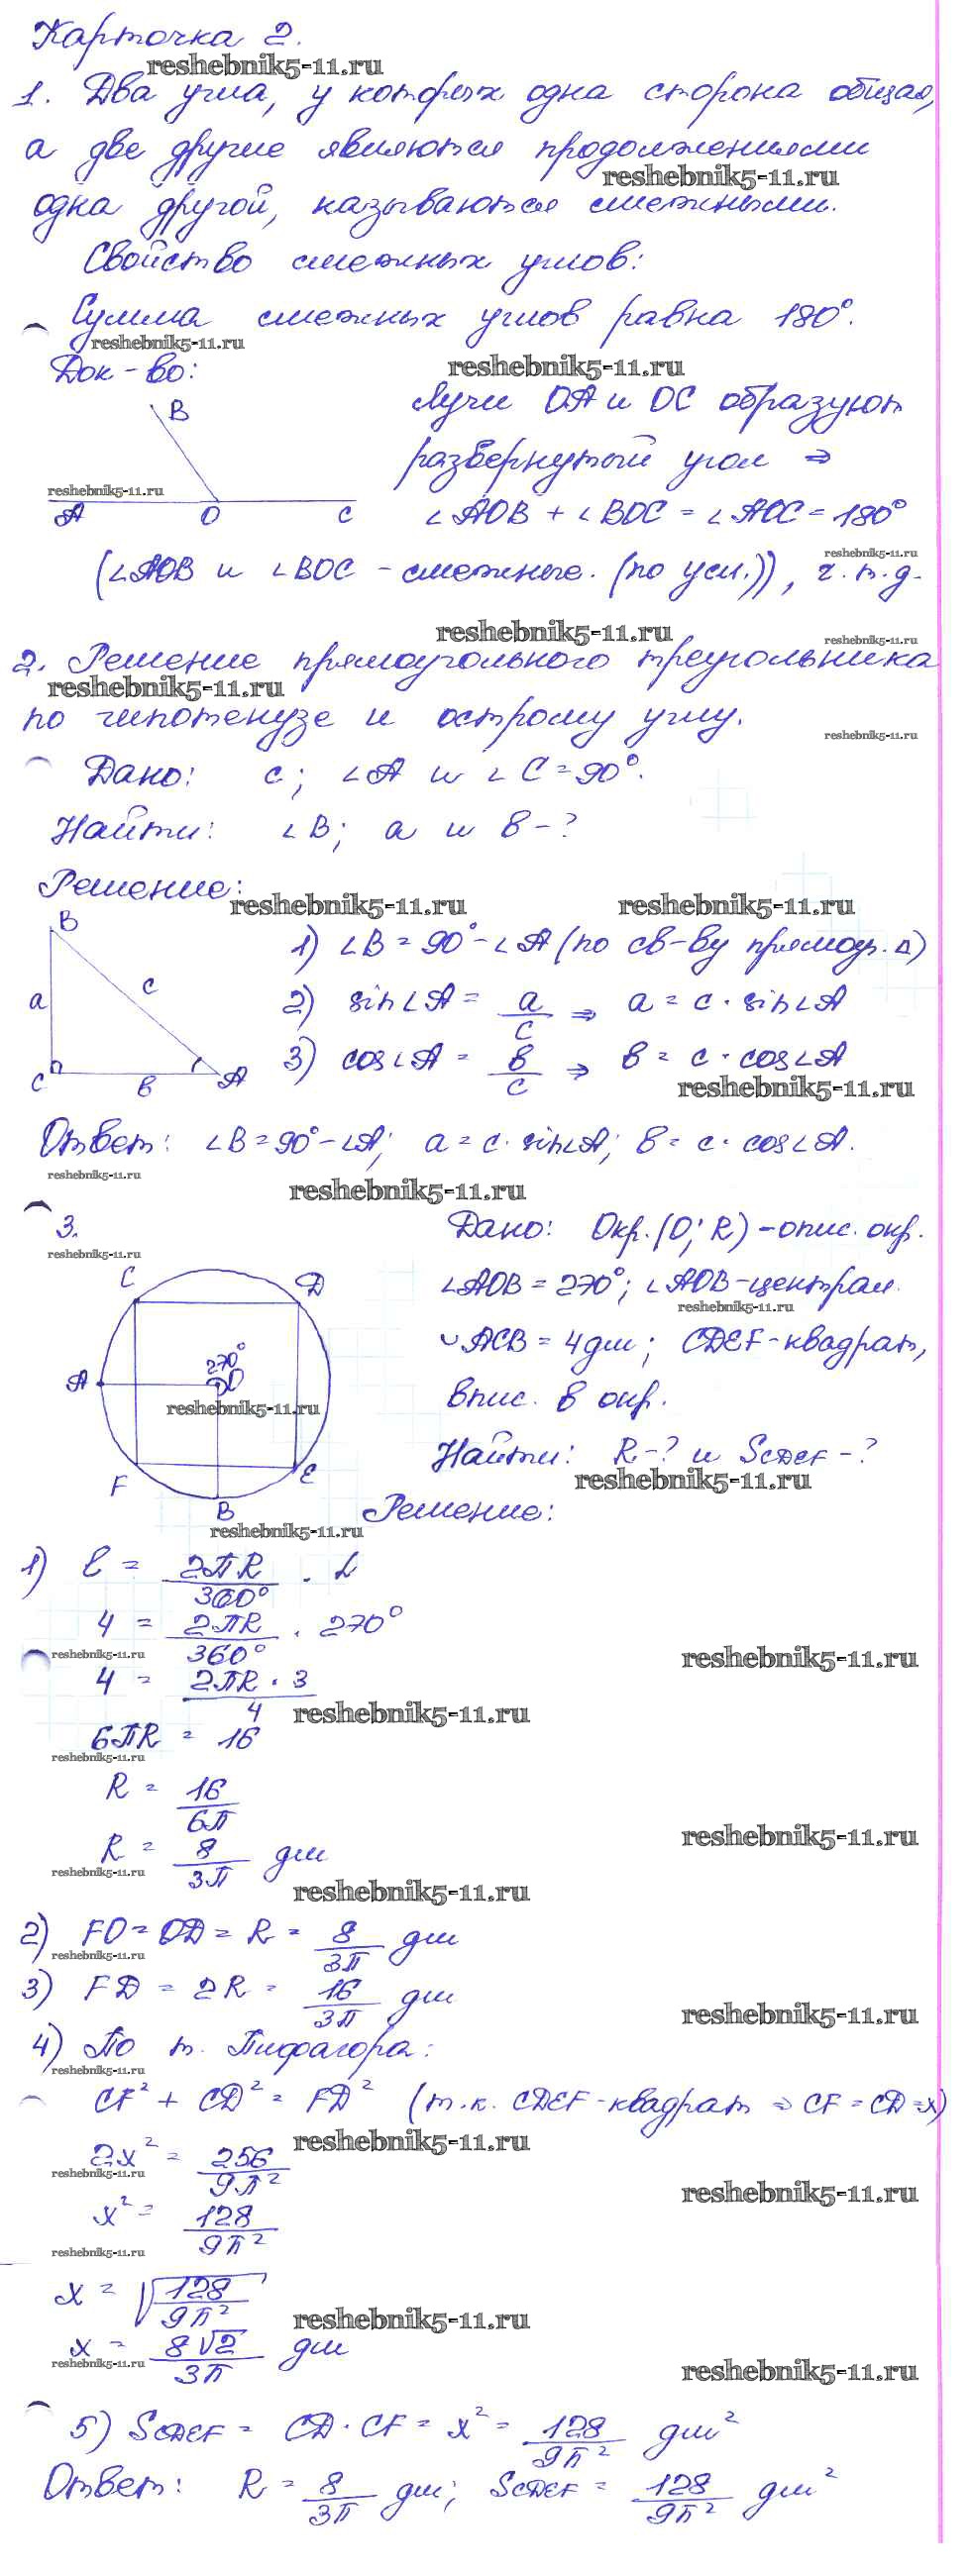 Карточка 2.
reshebnik5-11.ru
1. Два угла, у которых одна сторона общая,
а две другие являются продолжениями
reshebnik5-11.ru
одна другой, называются смежными.
Свойство смежных углов:
Сумма смежных углов равна 180°.
reshebnik5-11.ru
reshebnik5-11.ru
Док-во:
B
Лучи OA и OC образуют
развернутый угол ⇒
reshebnik5-11.ru
A O C
∠AOB + ∠BOC = ∠AOC = 180°
reshebnik5-11.ru
(∠AOB и ∠BOC - смежные. (по усл.)), ч.т.д.
reshebnik5-11.ru
reshebnik5-11.ru
2. Решение прямоугольного треугольника
reshebnik5-11.ru
по гипотенузе и острому углу.
reshebnik5-11.ru
Дано: c; ∠A и ∠C = 90°.
Найти: ∠B; a и b - ?
Решение:
reshebnik5-11.ru reshebnik5-11.ru
B
a
c
C
b
A
1) ∠B = 90° - ∠A (по св-ву прямоуг. Δ)
2) sin∠A = a/c ⇒ a = c · sin∠A
3) cos∠A = b/c ⇒ b = c · cos∠A
reshebnik5-11.ru
Ответ: ∠B = 90° - ∠A; a = c · sin∠A; b = c · cos∠A.
reshebnik5-11.ru
reshebnik5-11.ru
3.
reshebnik5-11.ru
Дано: Окр.(O; R) - опис. окр.
∠AOB = 270°; ∠AOB - централ.
reshebnik5-11.ru
◡ACB = 4 дм; CDEF - квадрат,
впис. в окр.
Найти: R - ? и SCDEF - ?
reshebnik5-11.ru
C
D
270°
A
O
reshebnik5-11.ru
F
E
B
reshebnik5-11.ru
Решение:
1) ℓ = 2πR/360° · L
4 = 2πR/360° · 270°
reshebnik5-11.ru
reshebnik5-11.ru
4 = 2πR · 3/4
reshebnik5-11.ru
6πR = 16
reshebnik5-11.ru
R = 16/6π
reshebnik5-11.ru
R = 8/3π дм
reshebnik5-11.ru
reshebnik5-11.ru
2) FO = OD = R = 8/3π дм
reshebnik5-11.ru
3) FD = 2R = 16/3π дм
reshebnik5-11.ru
4) По т. Пифагора:
reshebnik5-11.ru
CF² + CD² = FD² (т.к. CDEF - квадрат ⇒ CF = CD = x)
reshebnik5-11.ru
2x² = 256/9π²
reshebnik5-11.ru
reshebnik5-11.ru
x² = 128/9π²
reshebnik5-11.ru
x = √128/9π²
reshebnik5-11.ru
x = 8√2/3π дм
reshebnik5-11.ru
reshebnik5-11.ru
5) SCDEF = CD · CF = x² = 128/9π² дм²
Ответ: R = 8/3π дм; SCDEF = 128/9π² дм²